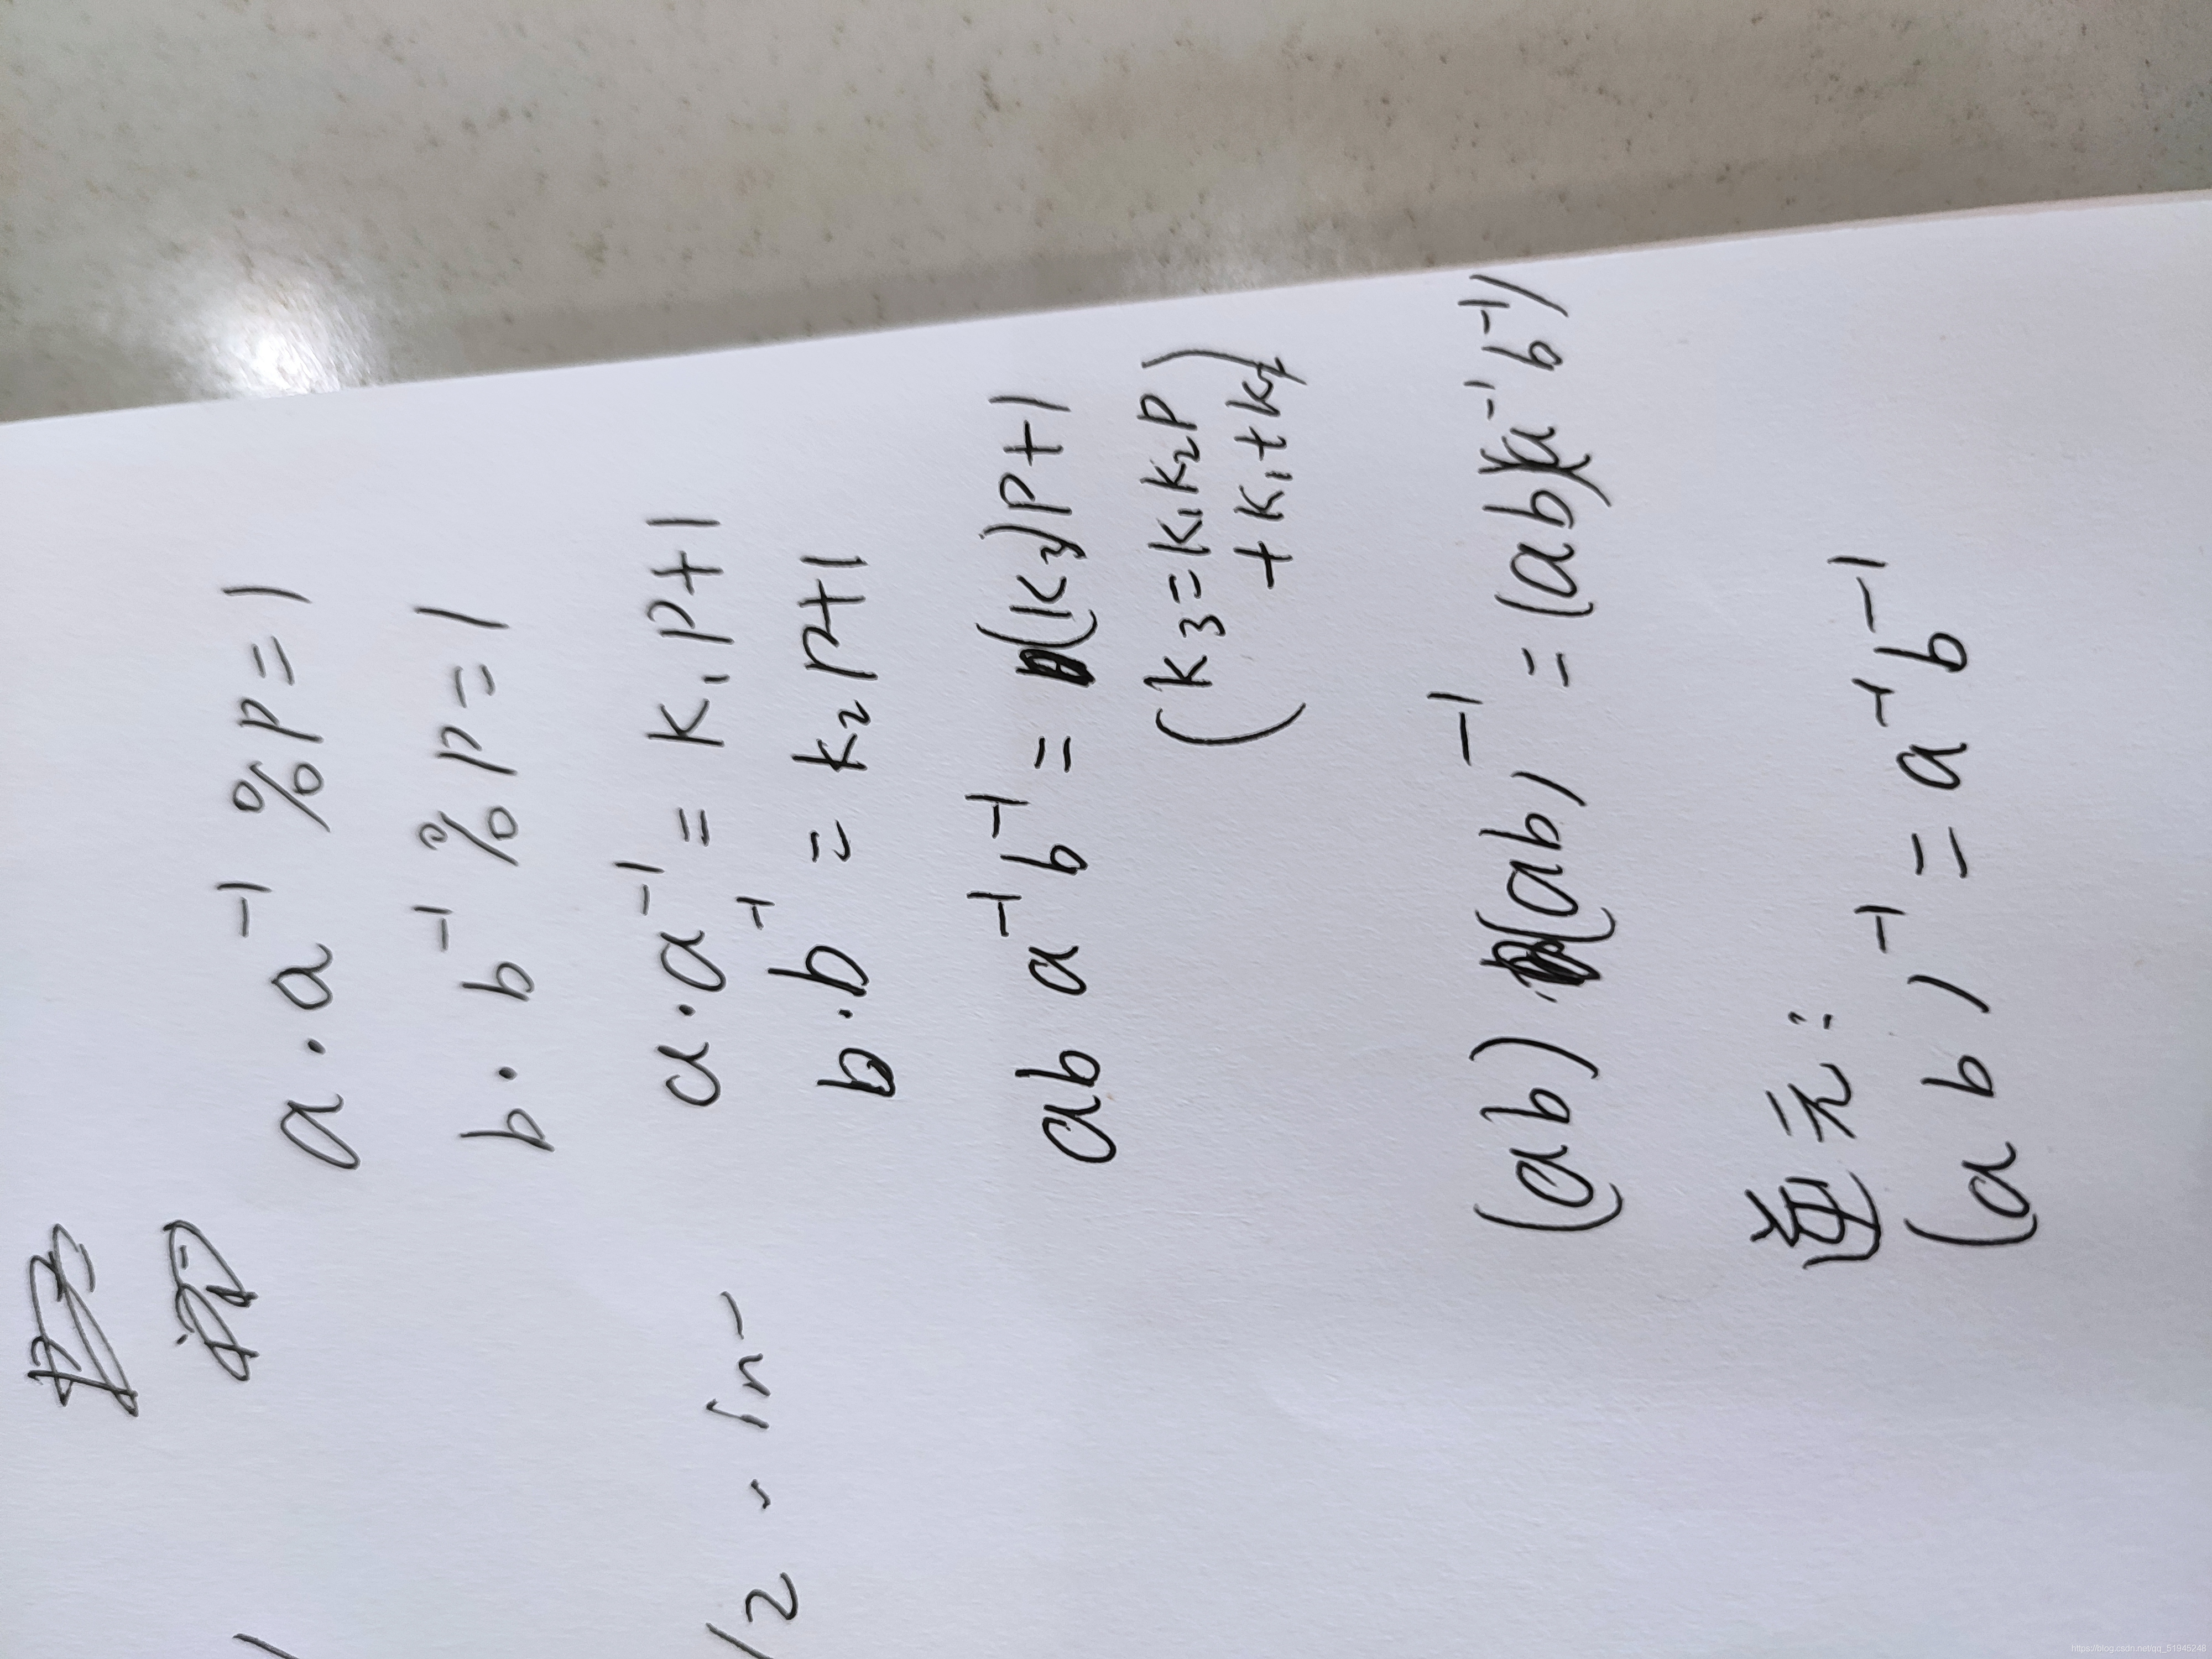 a · a⁻¹ % p = 1
b · b⁻¹ % p = 1
a · a⁻¹ = k₁ p + 1
b · b⁻¹ = k₂ p + 1
ab a⁻¹ b⁻¹ = (k₃) p + 1
(k₃ = k₁ k₂ p
+ k₁ + k₂)
(ab) · (ab)⁻¹ = (ab)(a⁻¹ b⁻¹)
逆元:
(ab)⁻¹ = a⁻¹ b⁻¹
https://blog.csdn.net/qq_51945248